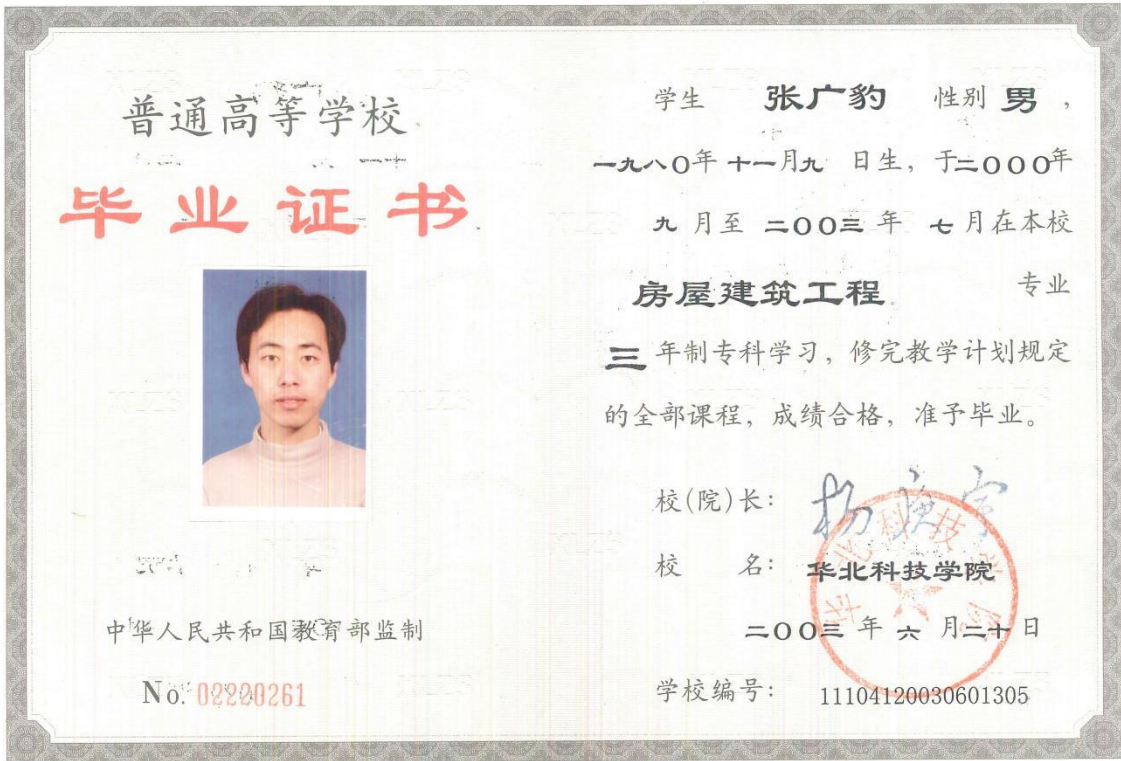 普通高等学校
毕业证书
中华人民共和国教育部监制
No. 02220261
学生 张广豹 性别 男 ,
一九八〇年 十一月九 日生, 于二〇〇〇年
九 月至 二〇〇三 年 七 月在本校
房屋建筑工程 专业
三 年制专科学习, 修完教学计划规定
的全部课程, 成绩合格, 准予毕业。
校(院)长:
校 名: 华北科技学院
二〇〇三 年 六 月二十日
学校编号: 11104120030601305
华北科技学院